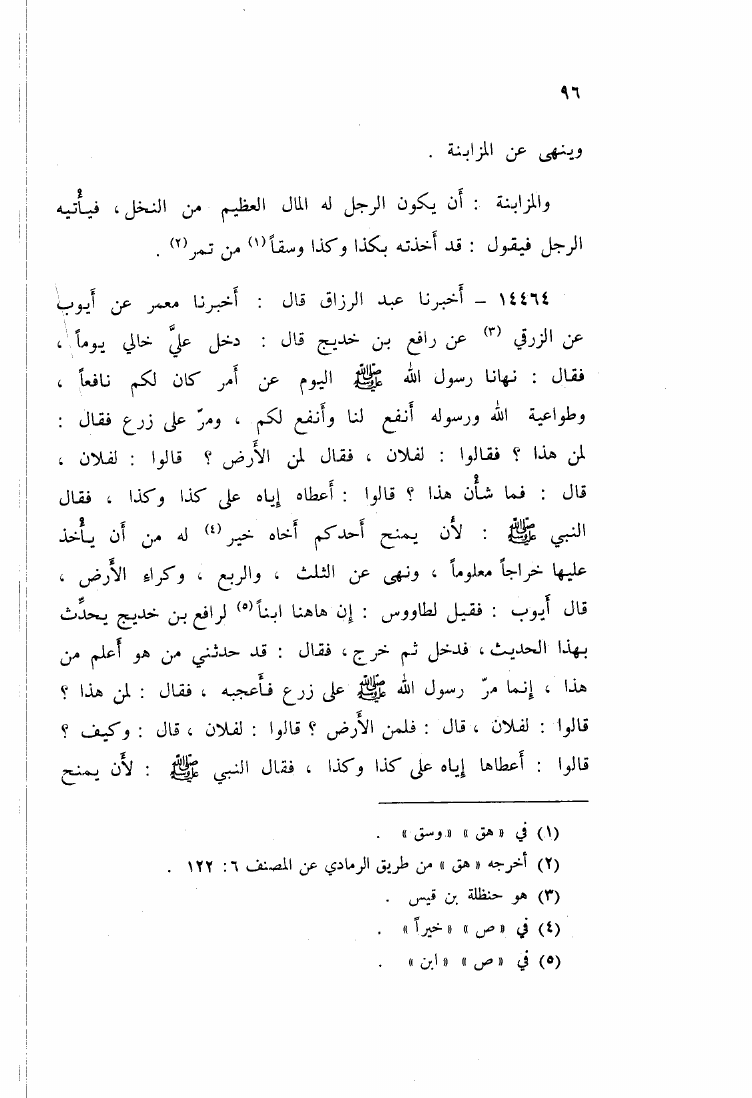 ٩٦
وينهى عن المزابنة .
والمزابنة : أن يكون الرجل له المال العظيم من النخل، فيأتيه
الرجل فيقول : قد أخذته بكذا وكذا وسقاً(١) من تمر(٢) .
١٤٤٦٤ – أخبرنا عبد الرزاق قال : أخبرنا معمر عن أيوب
عن الزرقي (٣) عن رافع بن خديج قال : دخل عليَّ خالي يوماً ،
فقال : نهانا رسول الله ﷺ اليوم عن أمر كان لكم نافعاً ،
وطواعية الله ورسوله أنفع لنا وأنفع لكم ، ومرّ على زرع فقال :
لمن هذا ؟ فقالوا : لفلان ، فقال لمن الأرض ؟ قالوا : لفلان ،
قال : فما شأن هذا ؟ قالوا : أعطاه إياه على كذا وكذا ، فقال
النبي ﷺ : لأن يمنح أحدكم أخاه خير(٤) له من أن يأخذ
عليها خراجاً معلوماً ، ونهى عن الثلث ، والربع ، وكراء الأرض ،
قال أيوب : فقيل لطاووس : إن هاهنا ابناً(٥) لرافع بن خديج يحدِّث
بهذا الحديث، فدخل ثم خرج، فقال : قد حدثني من هو أعلم من
هذا ، إنما مرّ رسول الله ﷺ على زرع فأعجبه ، فقال : لمن هذا ؟
قالوا : لفلان ، قال : فلمن الأرض ؟ قالوا : لفلان، قال : وكيف ؟
قالوا : أعطاها إياه على كذا وكذا ، فقال النبي ﷺ : لأن يمنح
(١) في « هق » « وسق » .
(٢) أخرجه « هق » من طريق الرمادي عن المصنف ٦ : ١٢٢ .
(٣) هو حنظلة بن قيس .
(٤) في « ص » « خيراً » .
(٥) في « ص » « ابن » .